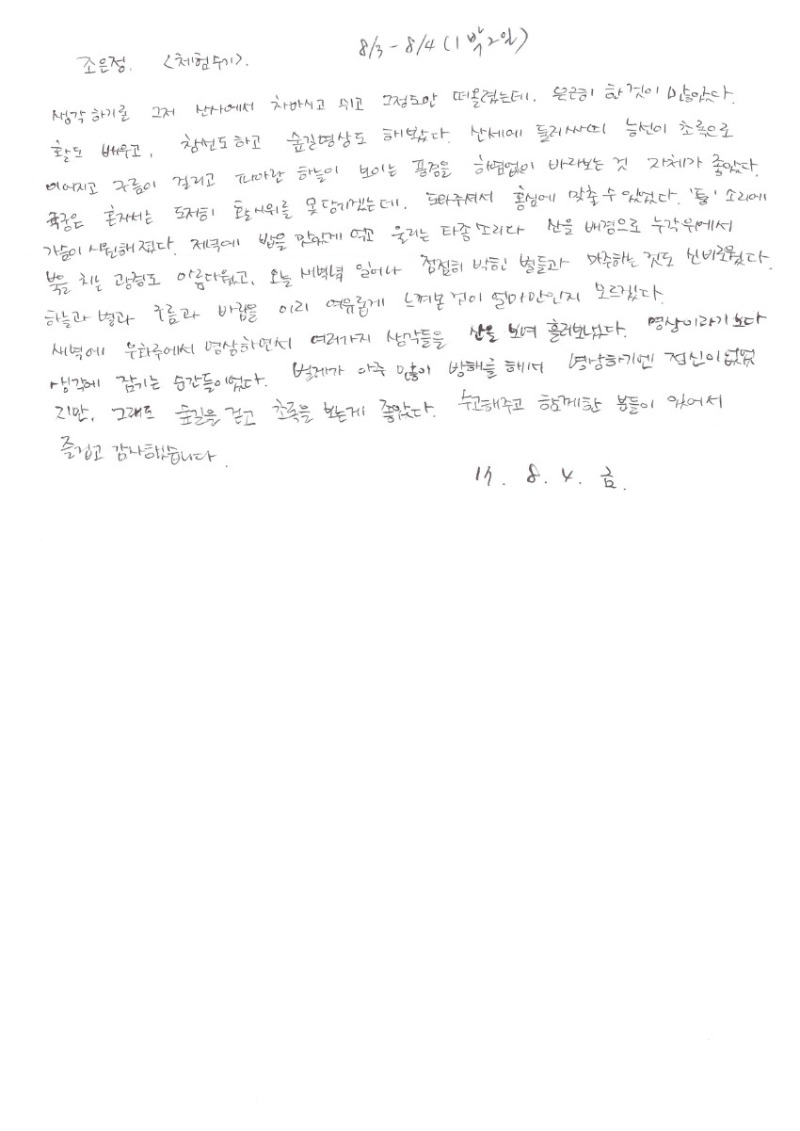 8/3 - 8/4 (1박2일)
조은정. <체험수기>.
생각하기론 그저 산사에서 차마시고 쉬고 그정도만 떠올렸는데. 은근히 한 것이 많았다.
활도 배우고, 참선도하고 숲길명상도 해봤다. 산세에 둘러싸여 능선이 초록으로
이어지고 구름이 걸리고 파아란 하늘이 보이는 풍경을 하염없이 바라보는 것 자체가 좋았다.
국궁은 혼자서는 도저히 활시위를 못 당기겠는데. 도와주셔서 홍심에 맞출 수 있었다. '퉁' 소리에
가슴이 시원해졌다. 저녁에 밥을 맛있게 먹고 울리는 타종 소리다 산을 배경으로 누각위에서
북을 치는 광경도 아름다웠고, 오늘 새벽녘 일어나 점점히 박힌 별들과 마주하는 것도 신비로웠다.
하늘과 별과 구름과 바람을 이리 여유롭게 느껴본 것이 얼마만인지 모르겠다.
새벽에 우화루에서 명상하면서 여러가지 생각들을 산을 보며 흘려보냈다. 명상이라기 보다
생각에 잠기는 순간들이었다. 벌레가 아주 많이 방해를 해서 명상하기엔 정신이 없었
지만, 그래도 숲길을 걷고 초록을 보는게 좋았다. 수고해주고 함께한 분들이 있어서
즐겁고 감사했습니다.
17. 8. 4. 금.